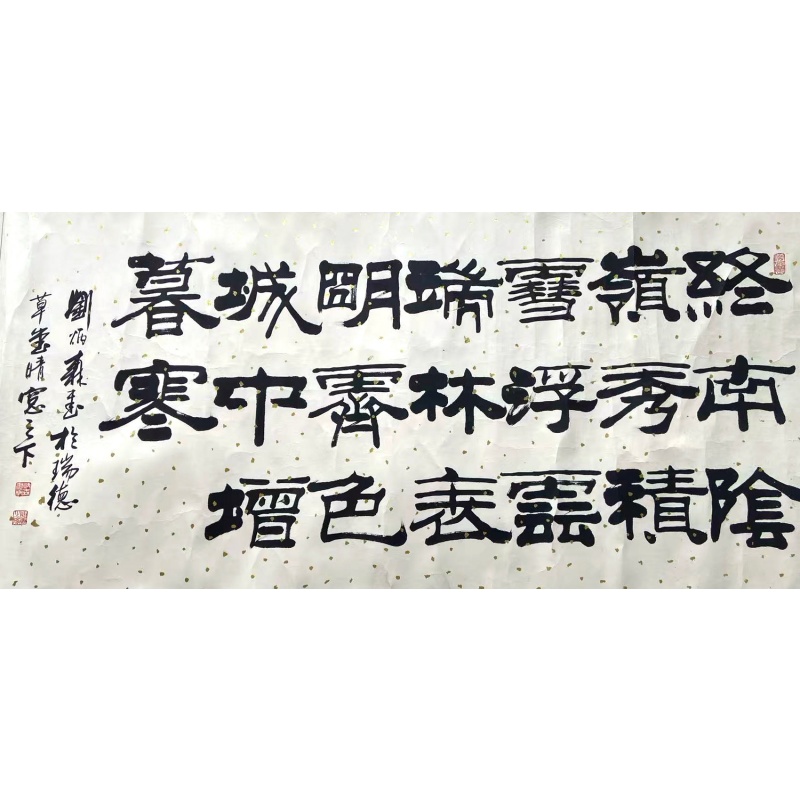 終南陰
嶺秀積
雪浮雲
端林表
明霽色
城中增
暮寒
劉炳森書於瑞德
草堂晴窓之下